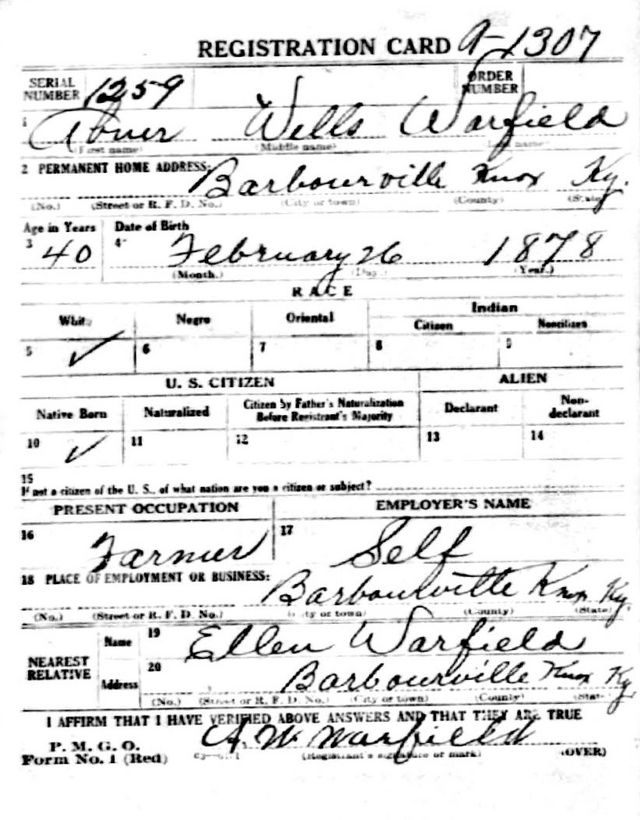 REGISTRATION CARD A-1307
SERIAL NUMBER 1259 ORDER NUMBER
1 Abner Wells Warfield
(First name) (Middle name) (Last name)
2 PERMANENT HOME ADDRESS:
Barbourville Knox Ky.
(No.) (Street or R. F. D. No.) (City or town) (County) (State)
Age in Years Date of Birth
3 40 4 February 26 1878
(Month.) (Day.) (Year.)
RACE
White Negro Oriental Indian
Citizen Noncitizen
5 ✓ 6 7 8 9
U. S. CITIZEN ALIEN
Native Born Naturalized Citizen by Father's Naturalization Before Registrant's Majority Declarant Non-declarant
10 ✓ 11 12 13 14
15
If not a citizen of the U. S., of what nation are you a citizen or subject?
PRESENT OCCUPATION EMPLOYER'S NAME
16 Farmer 17 Self
18 PLACE OF EMPLOYMENT OR BUSINESS:
Barbourville Knox Ky.
(No.) (Street or R. F. D. No.) (City or town) (County) (State)
NEAREST RELATIVE
Name 19 Ellen Warfield
Address 20 Barbourville Knox Ky
(No.) (Street or R. F. D. No.) (City or town) (County) (State)
I AFFIRM THAT I HAVE VERIFIED ABOVE ANSWERS AND THAT THEY ARE TRUE
P. M. G. O.
Form No. 1 (Red) A. W. Warfield
(Registrant's signature or mark) (OVER)